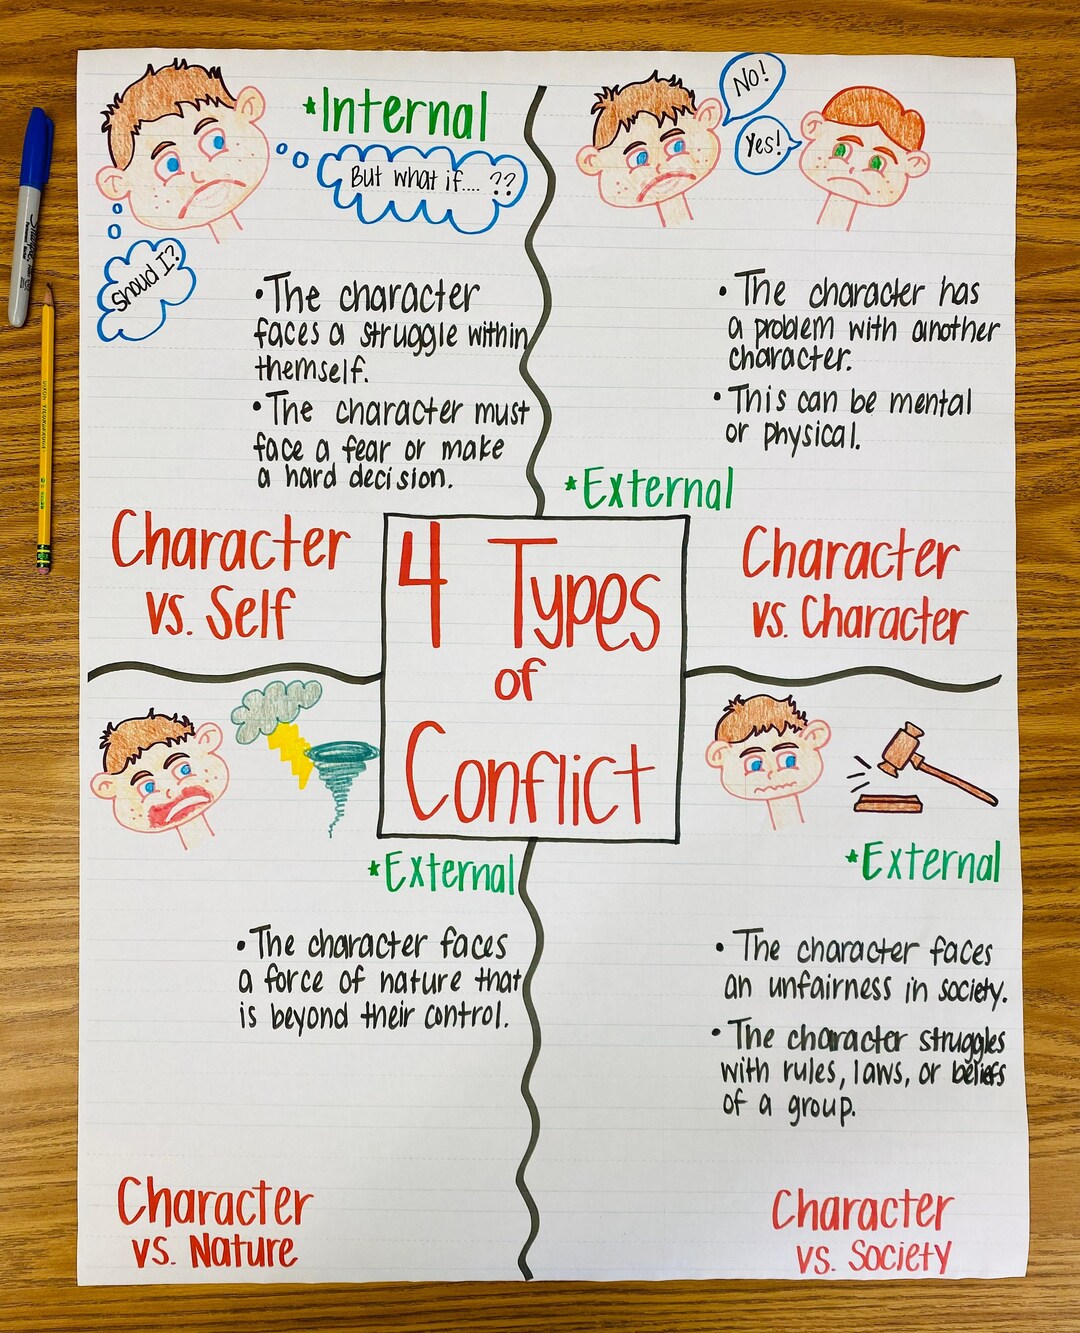 *Internal
But what if.... ??
Shoud I?
•The character
faces a struggle within
themself.
•The character must
face a fear or make
a hard decision.
Character
vs. Self
No!
Yes!
•The character has
a problem with another
character.
•This can be mental
or physical.
*External
Character
vs. Character
4 Types
of
Conflict
*External
•The character faces
a force of nature that
is beyond their control.
Character
vs. Nature
*External
•The character faces
an unfairness in society.
•The character struggles
with rules, laws, or beliefs
of a group.
Character
vs. Society
Sharpie